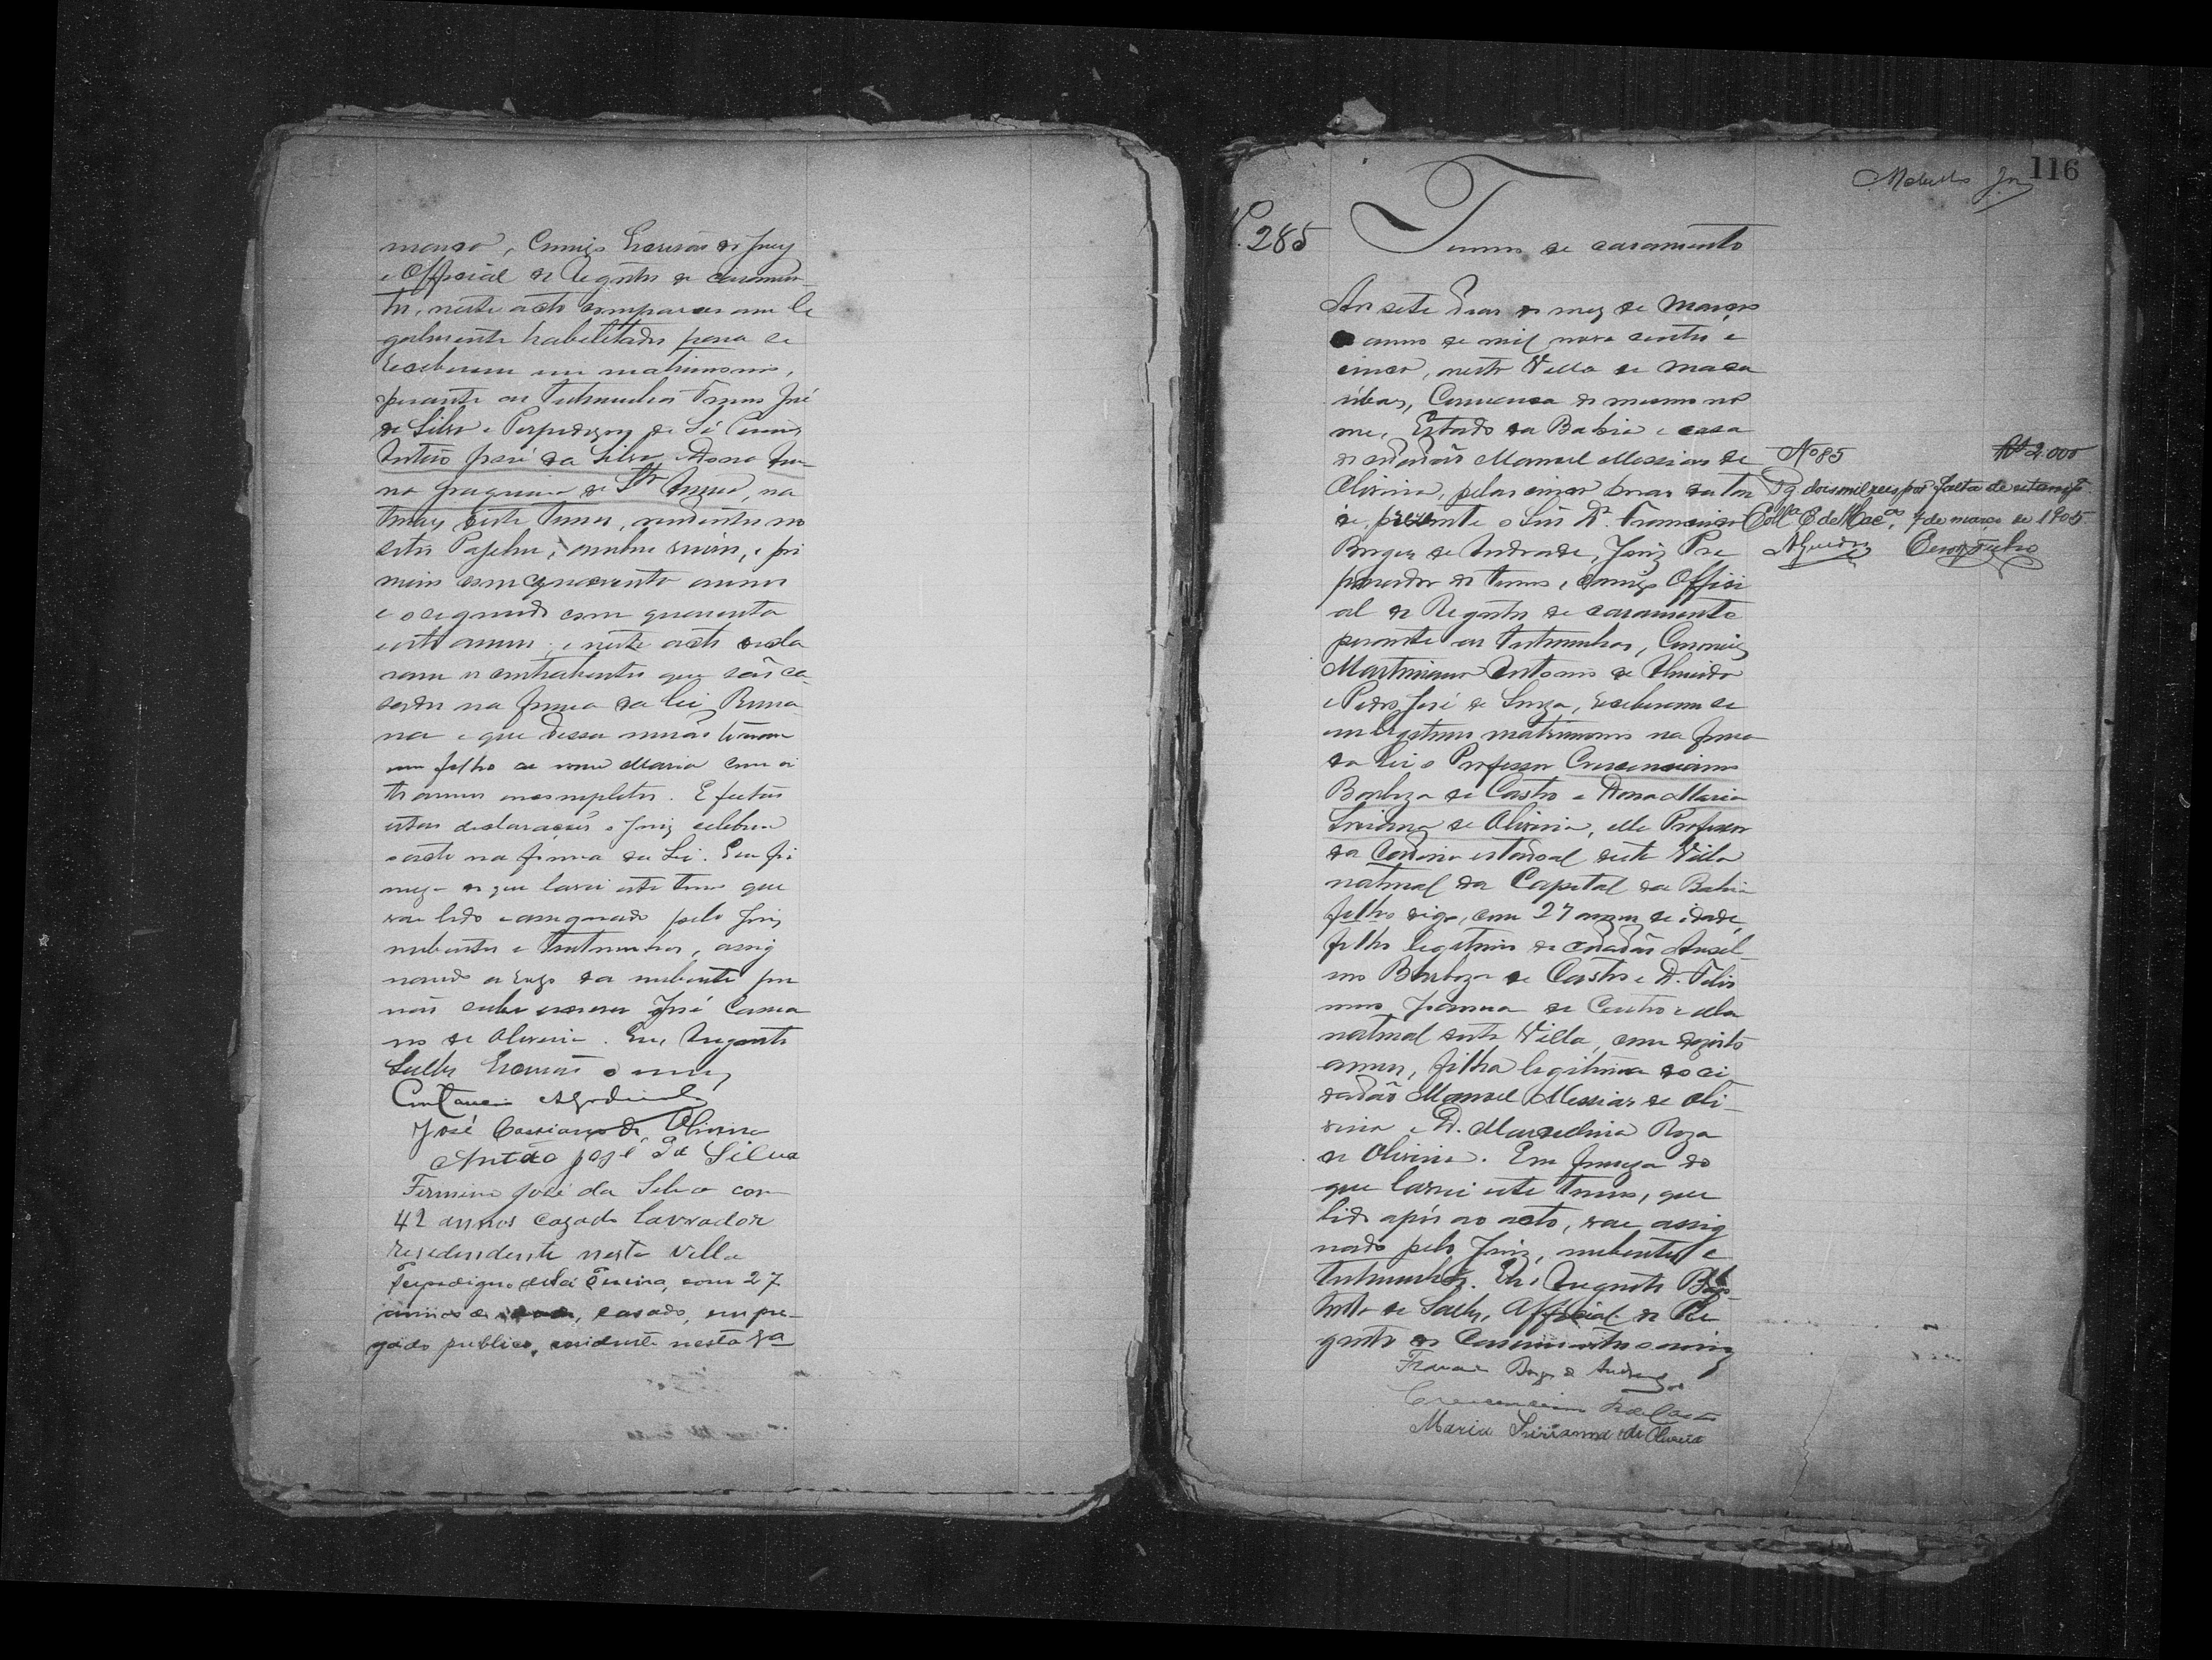 mando, comigo Escrivão do Juiz
e Official do Registro de casamen-
to, neste acto compareceram le
galmente habilitados para se
receberem em matrimonio,
perante as testemunhas Firmino José
da Silva e Perpedigno de Sá Teixeira
Antão José da Silva e Dona
na freguezia de
deste termo, residentes no
sitio ambos e pri
meiro com cincoenta annos
e o segundo com quarenta
e oito annos; e neste acto decla
ram os contrahentes que são ca-
sados na forma da lei Roma
na e que dessa união tiveram
um filho de nome Maria com oi
to annos incompletos. E feitas
estas declarações o Juiz celebrou
o acto na forma da Lei. Em fir
meza do que lavrei este termo que
vae lido e assignado pelo Juiz
nubentes e testemunhas, assig
nando a rogo da nubente por
não saber escrever José Cassia
no de Oliveira. Eu, Augusto
Salles Escrivão o escrevi
José Cassiano de Oliveira
Antão José da Silva
Firmino José da Silva com
42 annos cazado lavrador
resedendente nesta villa
Perpedigno de Sá Teixeira, com 27
annos de idade, casado, empre-
gado publico, residente nesta Va
116
N. 285
Termo de casamento
Aos sete dias do mez de Março
do anno de mil nove centos e
cinco, nesta Villa de Maca
úbas, Comarca do mesmo no
me, Estado da Bahia e casa
do cidadão Manuel Messias de
Oliveira, pelas cinco horas da tar
de, presente o Snr Dr. Francisco
Borges de Andrade, Juiz Pre
parador do termo, comigo Offici
al do Registro de casamento
perante as testemunhas, Coronel
Martiniano Antonio de Almeida
e Pedro José de Souza, receberam se
em legitimo matrimonio na forma
da lei o Professor Crescenciano
Barboza de Castro e Dona Maria
Siriana de Oliveira, elle Professor
da Cadeira estadoal desta Villa
natural da Capital da Bahia
filho digo, com 27 annos de idade,
filho legitimo do cidadão Ansel-
mo Barboza de Castro e D. Felis
mina Joanna de Castro e ella
natural desta Villa, com dezoito
annos, filha legitima do ci
dadão Manuel Messias de Oli-
veira e D. Marcellina Roza
de Oliveira. Em firmeza do
que lavrei este termo, que
lido após ao acto, vae assig
nado pelo Juiz, nubentes e
testemunhas. Eu, Augusto Bap-
tista de Salles, Official do Re
gistro de Casamentos o escrevi
Francisco Borges de Andrade
Crescenciano B. de Castro
Maria Sirianna de Oliveira
No 85 Rs 2.000
Pg dois mil reis por falta de estampa
Colla E de Macas, 7 de março de 1905